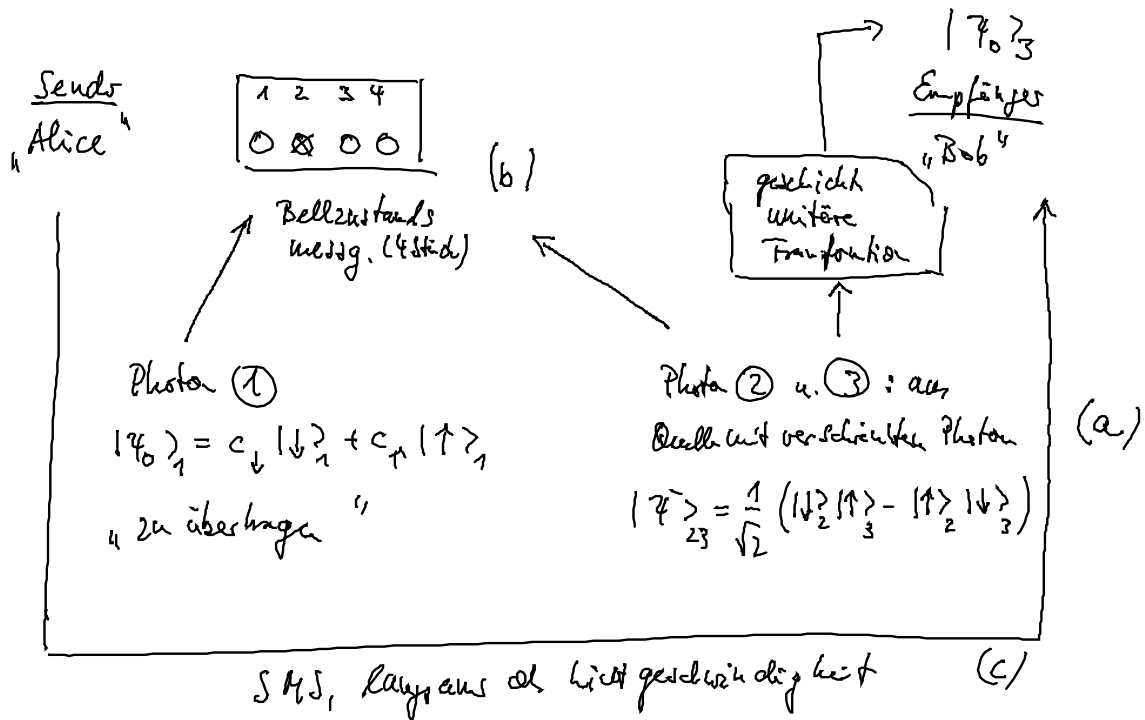 Sender
"Alice"
1 2 3 4
(b)
Bellzustands
messg. (4 Stück)
|Ψ₀⟩₃
Empfänger
"Bob"
geschickt
unitäre
Transformation
Photon ①
|Ψ₀⟩₁ = c↓ |↓⟩₁ + c↑ |↑⟩₁
"zu übertragen"
Photon ② u. ③ : aus
Quelle mit verschränkten Photon
|Ψ⁻⟩₂₃ = 1/√2 (|↓⟩₂ |↑⟩₃ - |↑⟩₂ |↓⟩₃)
(a)
SMS, langsam als Lichtgeschwindigkeit
(c)